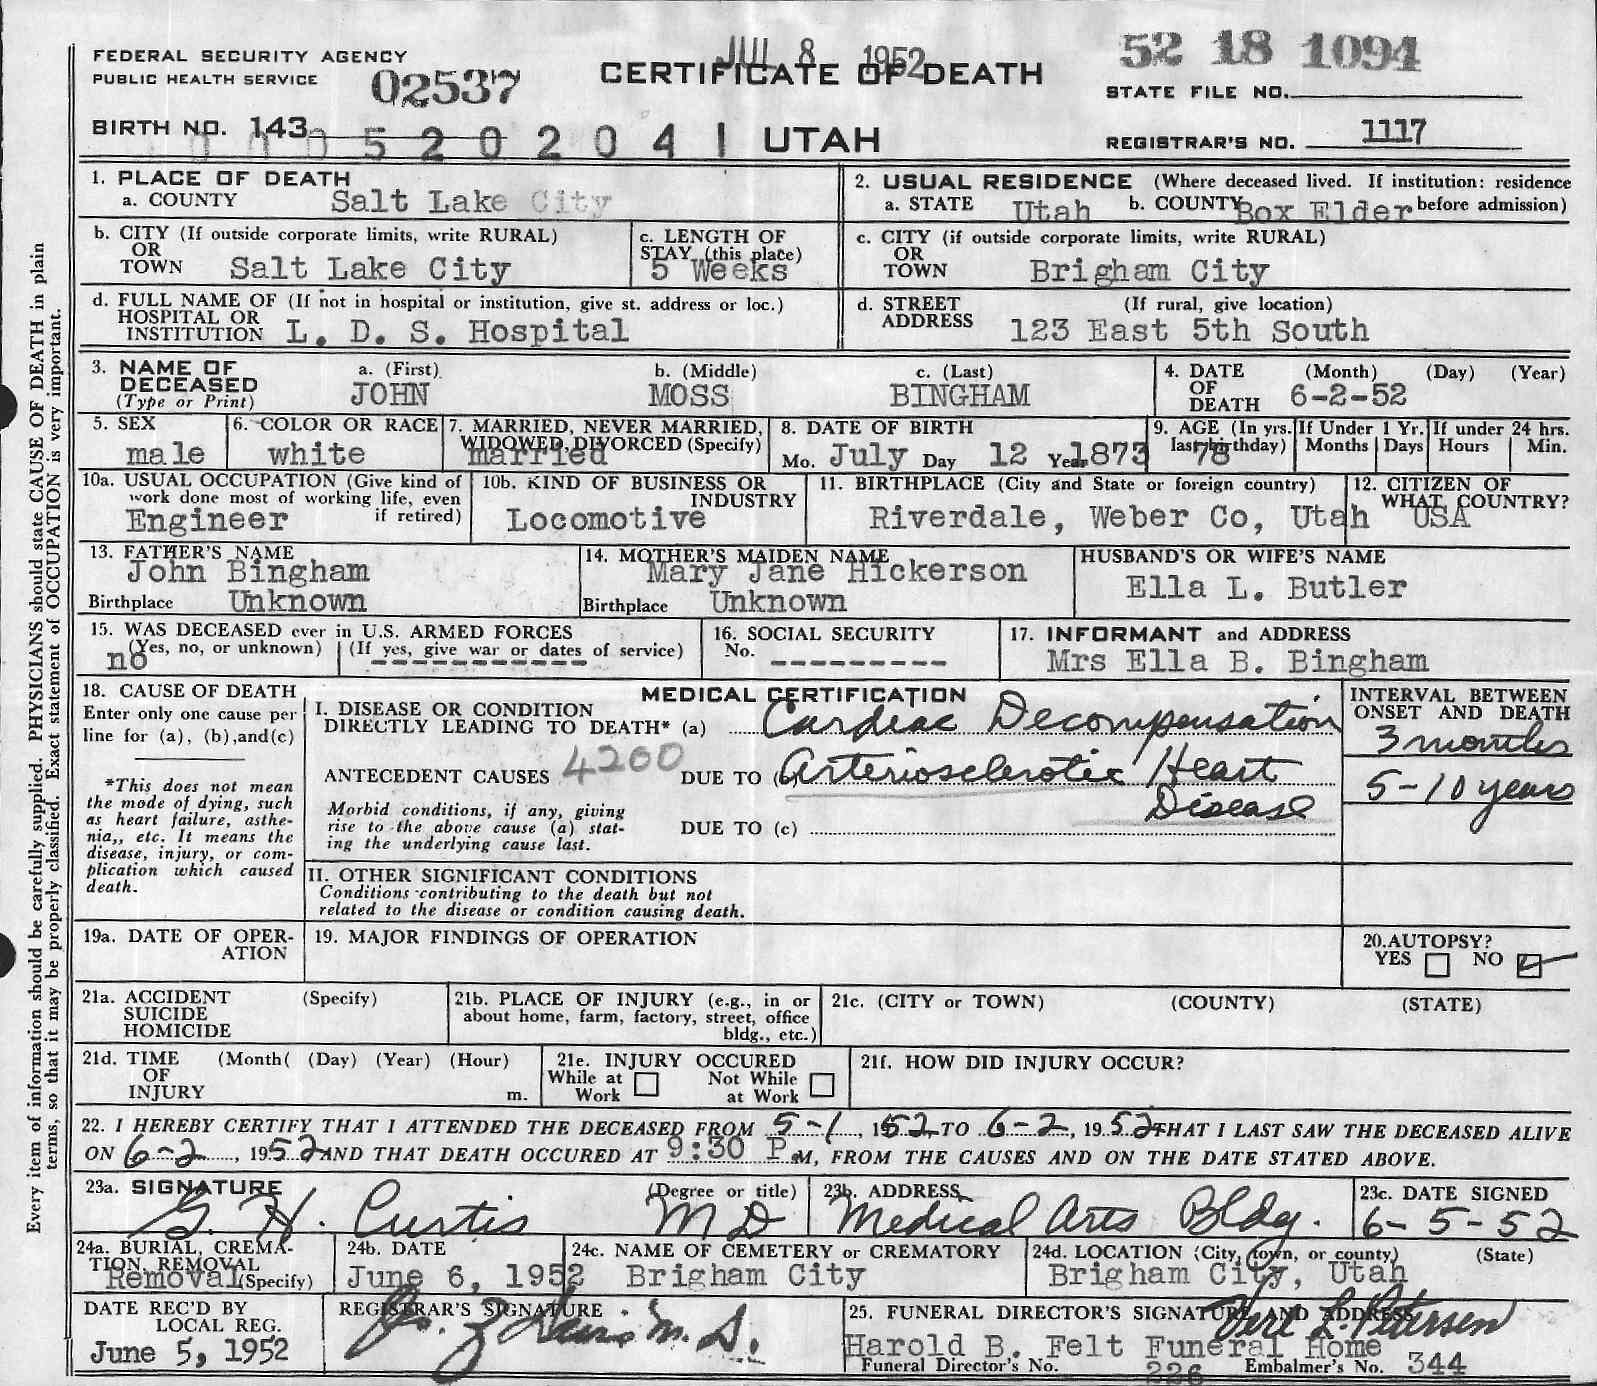 JUL 8 1952
52 18 1094
FEDERAL SECURITY AGENCY
PUBLIC HEALTH SERVICE
02537
CERTIFICATE OF DEATH
STATE FILE NO.
BIRTH NO. 143
520204 1
UTAH
REGISTRAR'S NO. 1117
1. PLACE OF DEATH
a. COUNTY Salt Lake City
2. USUAL RESIDENCE (Where deceased lived. If institution: residence before admission)
a. STATE Utah b. COUNTY Box Elder
b. CITY (If outside corporate limits, write RURAL)
OR
TOWN Salt Lake City
c. LENGTH OF
STAY (this place)
5 Weeks
c. CITY (if outside corporate limits, write RURAL)
OR
TOWN Brigham City
d. FULL NAME OF (If not in hospital or institution, give st. address or loc.)
HOSPITAL OR
INSTITUTION L. D. S. Hospital
d. STREET (If rural, give location)
ADDRESS 123 East 5th South
3. NAME OF
DECEASED
(Type or Print)
a. (First) b. (Middle) c. (Last)
JOHN MOSS BINGHAM
4. DATE (Month) (Day) (Year)
OF
DEATH 6-2-52
5. SEX
male
6. COLOR OR RACE
white
7. MARRIED, NEVER MARRIED,
WIDOWED, DIVORCED (Specify)
married
8. DATE OF BIRTH
Mo. July Day 12 Year 1873
9. AGE (In yrs. last birthday)
78
If Under 1 Yr.
Months Days
If under 24 hrs.
Hours Min.
10a. USUAL OCCUPATION (Give kind of
work done most of working life, even
if retired)
Engineer
10b. KIND OF BUSINESS OR
INDUSTRY
Locomotive
11. BIRTHPLACE (City and State or foreign country)
Riverdale, Weber Co, Utah
12. CITIZEN OF
WHAT COUNTRY?
USA
13. FATHER'S NAME
John Bingham
Birthplace Unknown
14. MOTHER'S MAIDEN NAME
Mary Jane Hickerson
Birthplace Unknown
HUSBAND'S OR WIFE'S NAME
Ella L. Butler
15. WAS DECEASED ever in U.S. ARMED FORCES
(Yes, no, or unknown) (If yes, give war or dates of service)
no ------------
16. SOCIAL SECURITY
No. ---------
17. INFORMANT and ADDRESS
Mrs Ella B. Bingham
18. CAUSE OF DEATH
Enter only one cause per
line for (a), (b),and(c)
*This does not mean
the mode of dying, such
as heart failure, asthe-
nia,, etc. It means the
disease, injury, or com-
plication which caused
death.
MEDICAL CERTIFICATION
I. DISEASE OR CONDITION
DIRECTLY LEADING TO DEATH* (a) Cardiac Decompensation
ANTECEDENT CAUSES 4200 DUE TO (b) Arteriosclerotic Heart
Disease
Morbid conditions, if any, giving
rise to the above cause (a) stat-
ing the underlying cause last.
DUE TO (c)
INTERVAL BETWEEN
ONSET AND DEATH
3 months
5-10 years
II. OTHER SIGNIFICANT CONDITIONS
Conditions contributing to the death but not
related to the disease or condition causing death.
19a. DATE OF OPER-
ATION
19. MAJOR FINDINGS OF OPERATION
20.AUTOPSY?
YES NO
21a. ACCIDENT (Specify)
SUICIDE
HOMICIDE
21b. PLACE OF INJURY (e.g., in or
about home, farm, factory, street, office
bldg., etc.)
21c. (CITY or TOWN) (COUNTY) (STATE)
21d. TIME (Month( (Day) (Year) (Hour)
OF
INJURY m.
21e. INJURY OCCURED
While at Work Not While at Work
21f. HOW DID INJURY OCCUR?
22. I HEREBY CERTIFY THAT I ATTENDED THE DECEASED FROM 5-1, 1952, TO 6-2, 1952 THAT I LAST SAW THE DECEASED ALIVE
ON 6-2, 1952 AND THAT DEATH OCCURED AT 9:30 P.M, FROM THE CAUSES AND ON THE DATE STATED ABOVE.
23a. SIGNATURE (Degree or title)
G. H. Curtis MD
23b. ADDRESS
Medical Arts Bldg.
23c. DATE SIGNED
6-5-52
24a. BURIAL, CREMA-
TION, REMOVAL
Removal (Specify)
24b. DATE
June 6, 1952
24c. NAME OF CEMETERY or CREMATORY
Brigham City
24d. LOCATION (City, town, or county) (State)
Brigham City, Utah
DATE REC'D BY
LOCAL REG.
June 5, 1952
REGISTRAR'S SIGNATURE
M. D.
25. FUNERAL DIRECTOR'S SIGNATURE AND ADDRESS
Verl L. Petersen
Harold B. Felt Funeral Home
Funeral Director's No. 226 Embalmer's No. 344
Every item of information should be carefully supplied. PHYSICIANS should state CAUSE OF DEATH in plain
terms, so that it may be properly classified. Exact statement of OCCUPATION is very important.